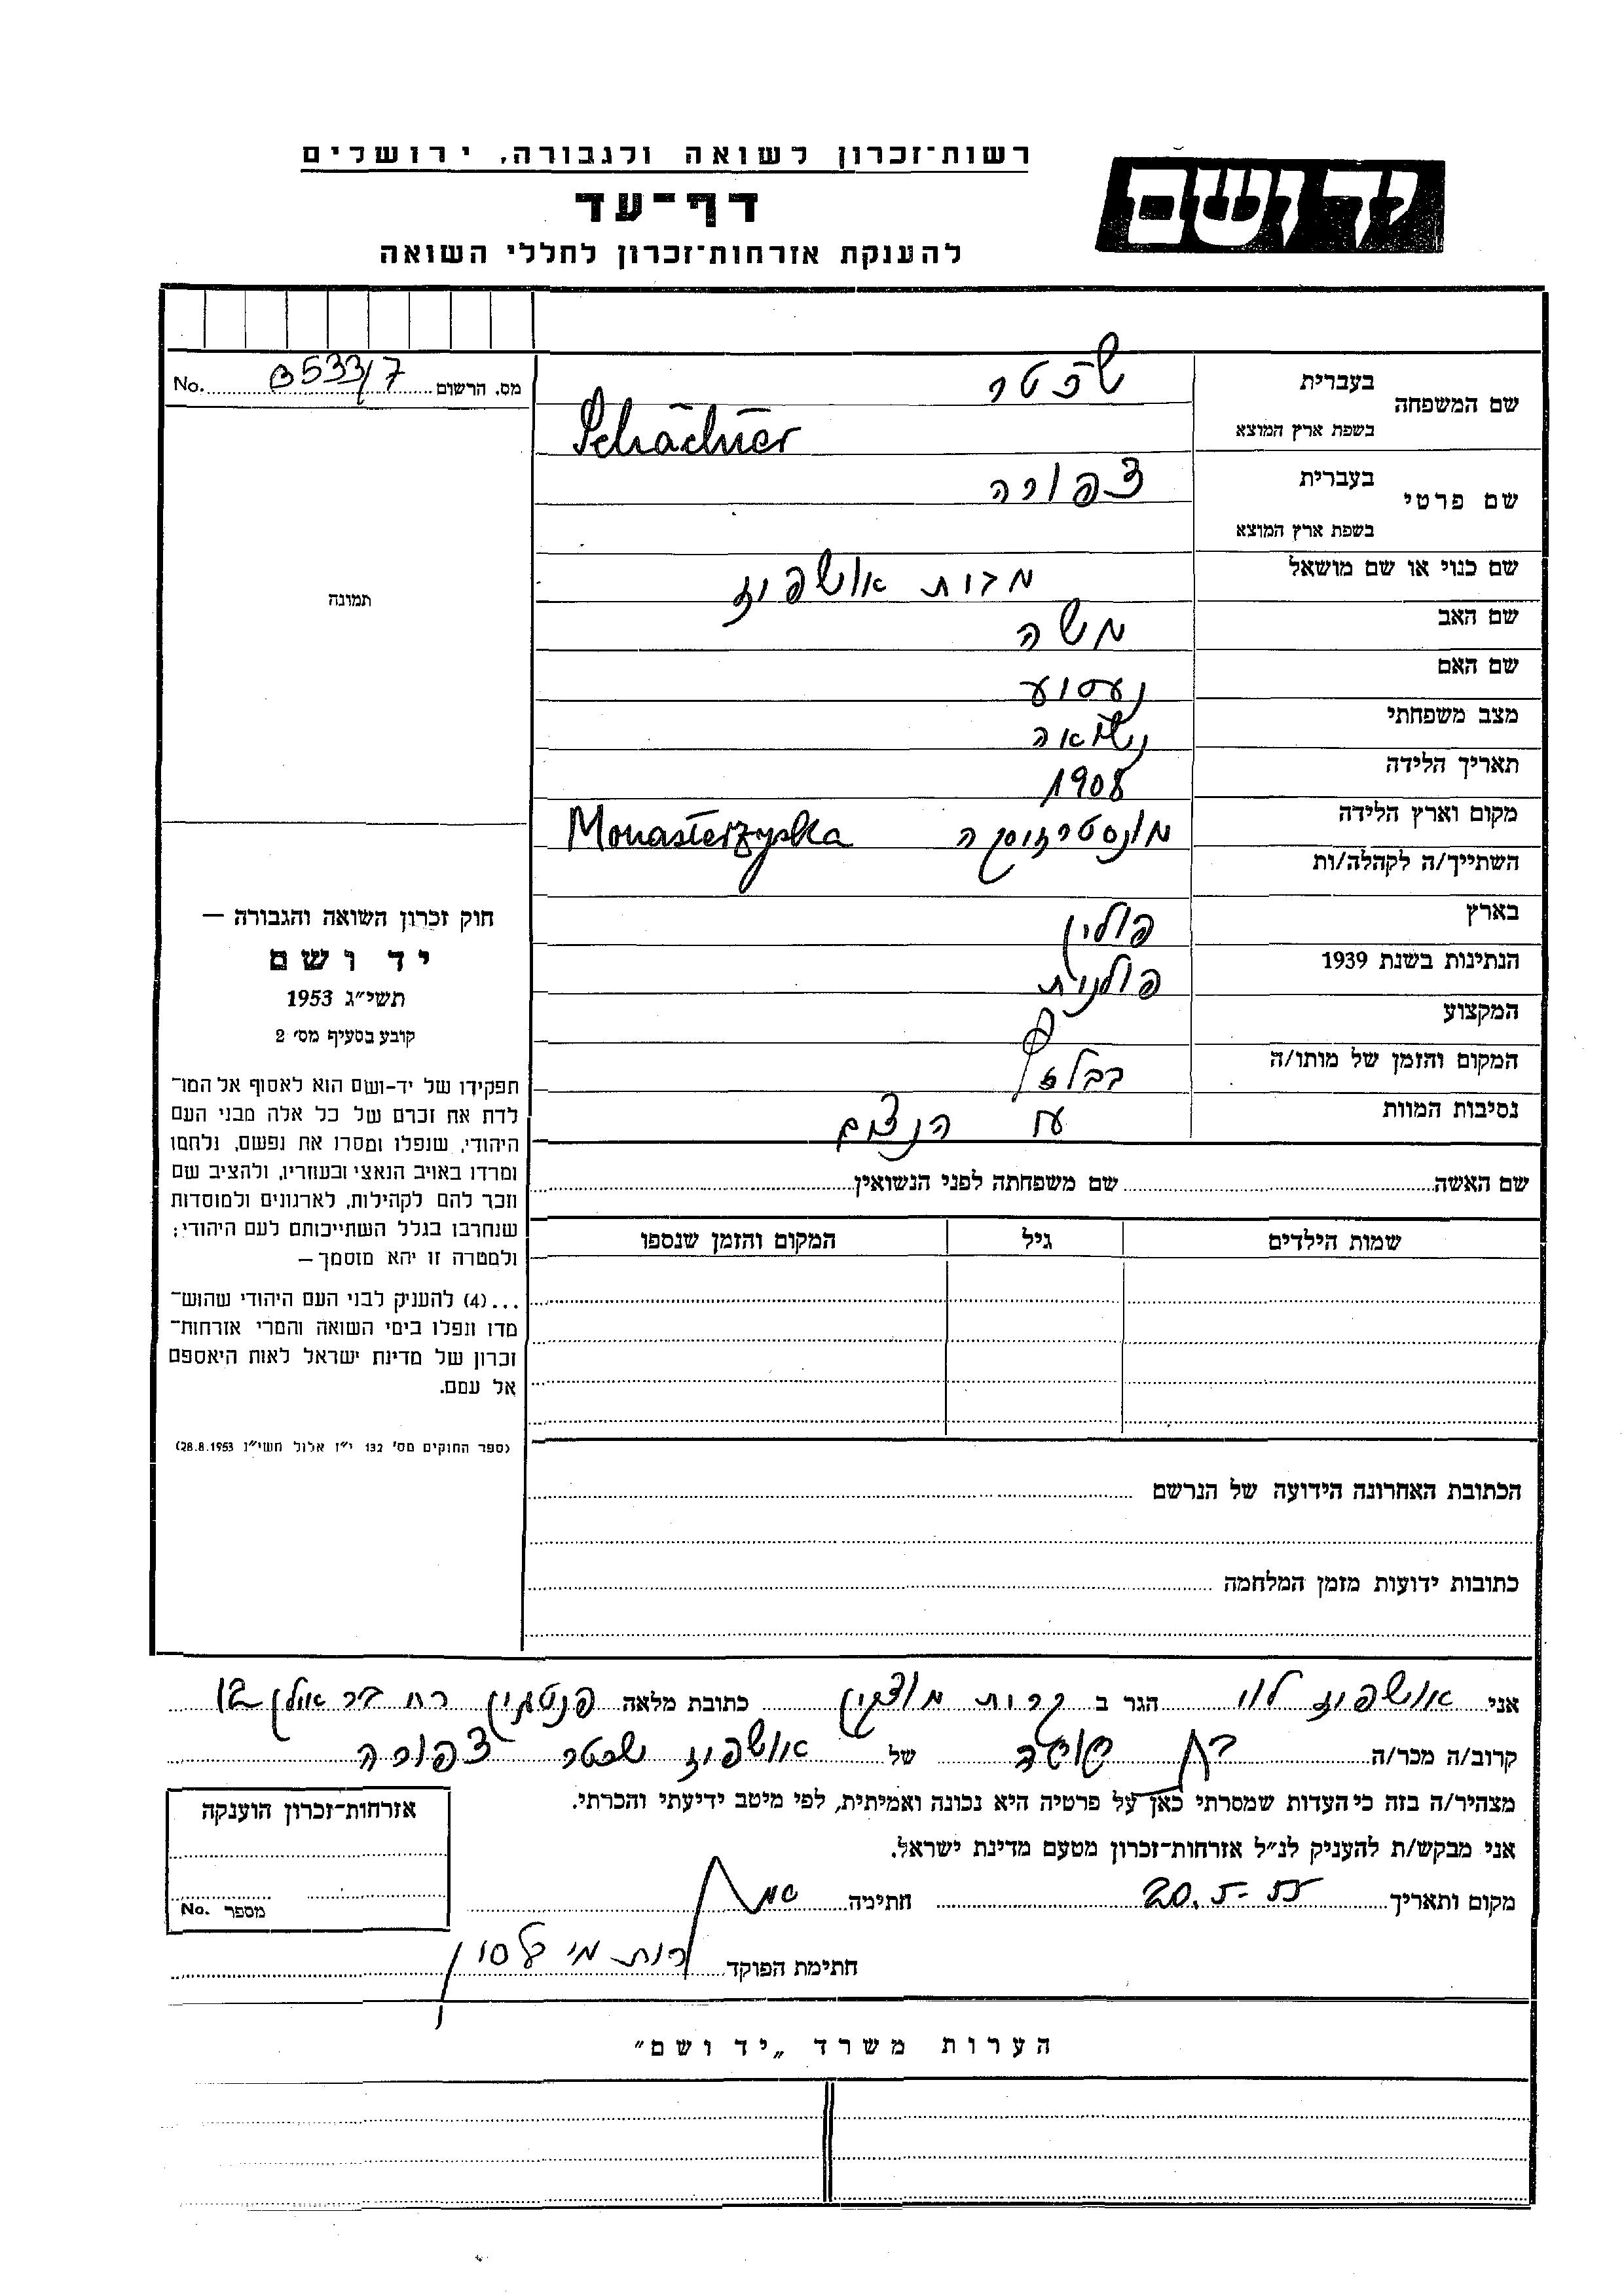 רשות־זכרון לשואה ולגבורה, ירושלים
יד ושם
דף־עד
להענקת אזרחות־זכרון לחללי השואה
מס. הרשום 3533/7 No.
שם המשפחה
בעברית
שכטר
בשפת ארץ המוצא
Schächter
שם פרטי
בעברית
צפורה
בשפת ארץ המוצא
שם כנוי או שם מושאל
מבית אושפיז
שם האב
משה
שם האם
מצב משפחתי
נשואה
תאריך הלידה
1908
מקום וארץ הלידה
מונסטרזיסקה Monasterzyska
השתייך/ה לקהלה/ות
בארץ
פולין
הנתינות בשנת 1939
פולנית
המקצוע
המקום והזמן של מותו/ה
בבלזץ
נסיבות המוות
ע"י הנצים
שם האשה
שם משפחתה לפני הנשואין
שמות הילדים
גיל
המקום והזמן שנספו
הכתובת האחרונה הידועה של הנרשם
כתובות ידועות מזמן המלחמה
תמונה
חוק זכרון השואה והגבורה —
יד ושם
תשי״ג 1953
קובע בסעיף מס׳ 2
תפקידו של יד-ושם הוא לאסוף אל המו־
לדת את זכרם של כל אלה מבני העם
היהודי, שנפלו ומסרו את נפשם, נלחמו
ומרדו באויב הנאצי ובעוזריו, ולהציב שם
וזכר להם לקהילות, לארגונים ולמוסדות
שנחרבו בגלל השתייכותם לעם היהודי;
ולמטרה זו יהא מוסמך —
...(4) להענק לבני העם היהודי שהוש־
מדו ונפלו בימי השואה והמרי אזרחות־
זכרון של מדינת ישראל לאות היאספם
אל עמם.
(ספר החוקים מס׳ 132 י״ז אלול תשי״ג 28.8.1953)
אני אושפיז לוי הגר ב קרות מוצקין כתובת מלאה רח בר אילן 12
קרוב/ה מכר/ה בן של אושפיז שכטר צפורה
מצהיר/ה בזה כי העדות שמסרתי כאן על פרטיה היא נכונה ואמיתית, לפי מיטב ידיעתי והכרתי.
אני מבקש/ת להעניק לנ״ל אזרחות־זכרון מטעם מדינת ישראל.
מקום ותאריך 20.5.55 חתימה
חתימת הפוקד
אזרחות־זכרון הוענקה
מספר No.
הערות משרד „יד ושם״